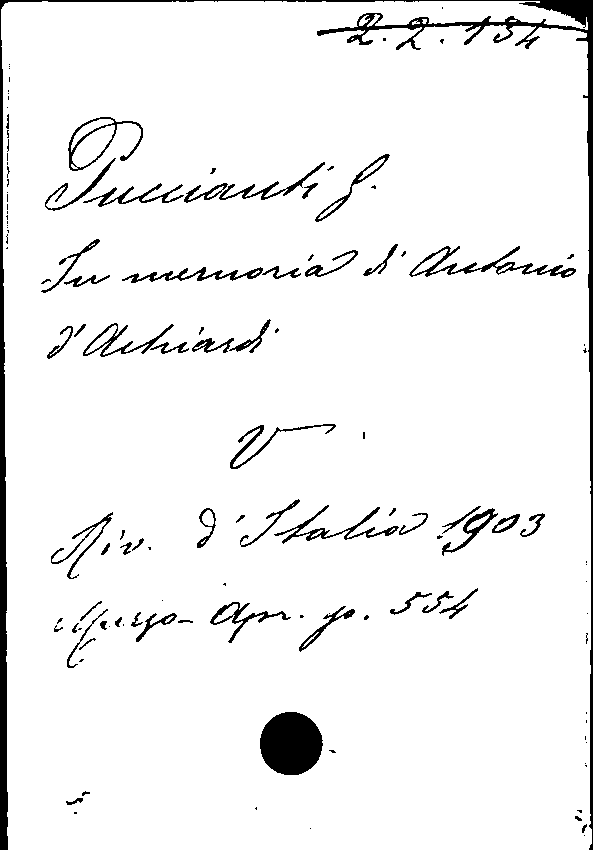 2.2.134
Puccianti G.
In memoria di Antonio
d'Achiardi
V
Riv. d'Italia 1903
Marzo-Apr. p. 554